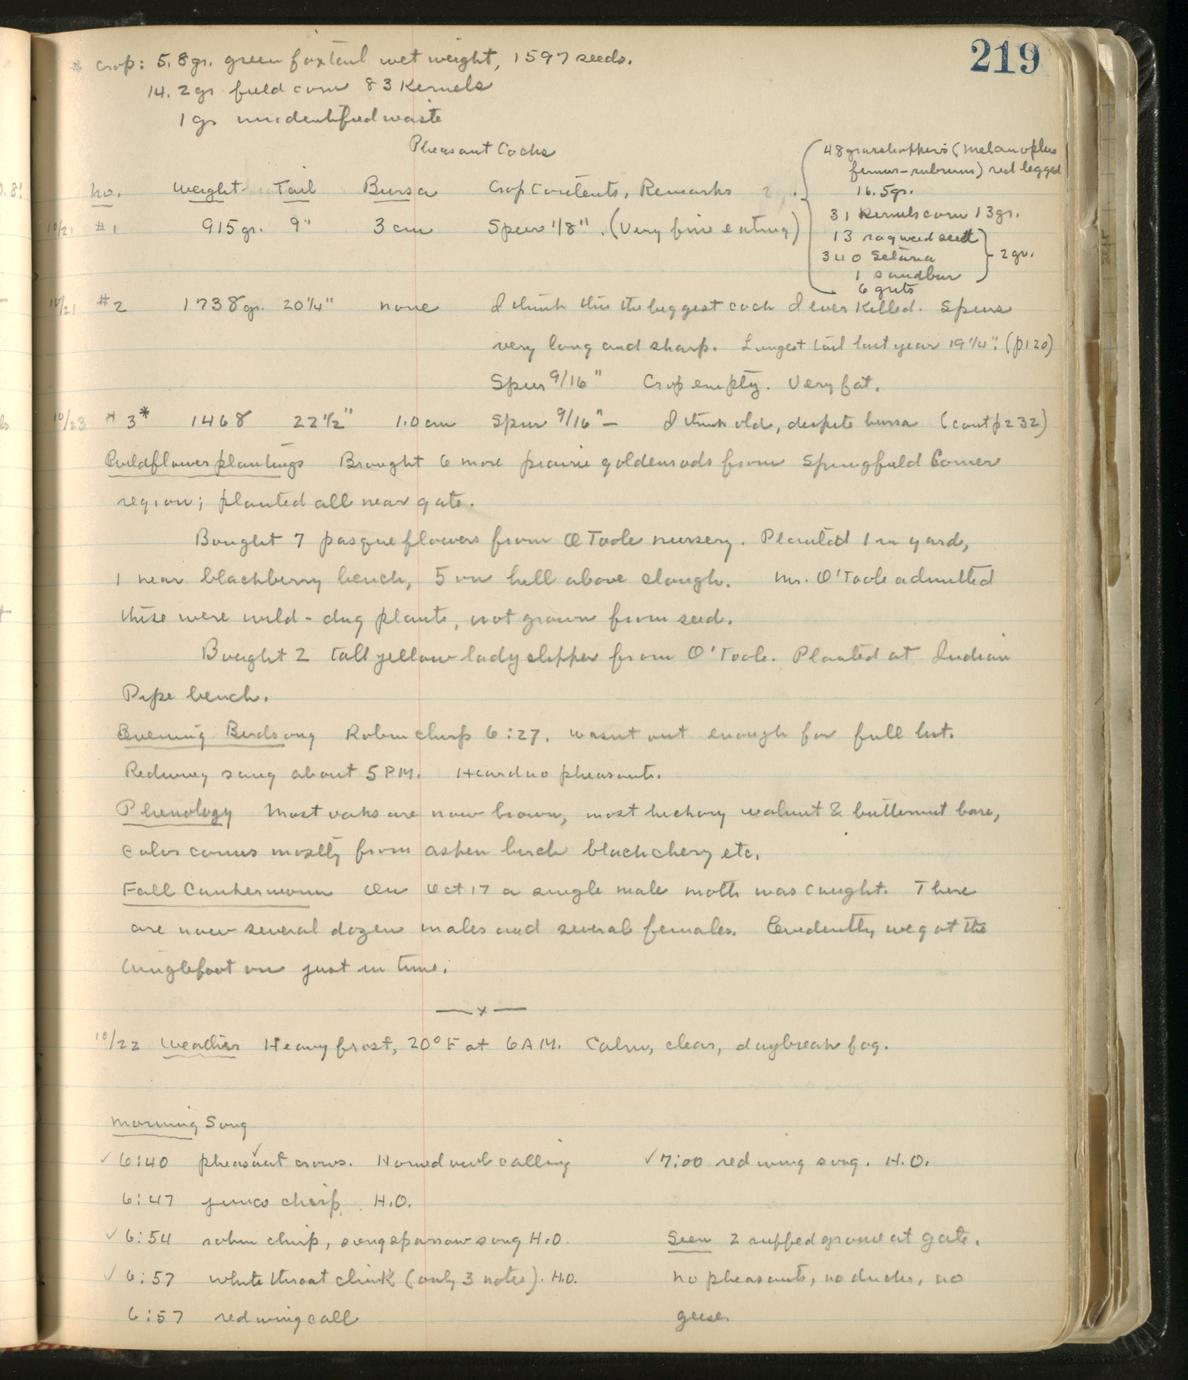 219
* crop: 5.8gr. green foxtail wet weight, 1597 seeds.
14.2gr field corn 83 Kernels
1 gr unidentified waste
Pheasant Cocks
48 grasshoppers (Melanoplus
femur-rubrum) red legged
16.5gr.
31 Kernels corn 13gr.
13 ragweed seed
340 Setaria
1 sandbur
2gr.
6 grits
no. Weight Tail Bursa Crop Contents, Remarks
10/21 #1 915gr. 9" 3cm Spur 1/8". (Very fine eating)
10/21 #2 1738gr. 20 1/4" none I think this the biggest cock I ever killed. Spurs
very long and sharp. Longest tail last year 19 1/4". (p120)
Spur 9/16" Crop empty. Very fat.
10/23 #3* 1468 22 1/2" 1.0cm Spur 9/16" – I think old, despite bursa (cont p232)
Wildflower plantings Brought 6 more prairie goldenrods from Springfield Corner
region; planted all near gate.
Bought 7 pasque flowers from O'Toole nursery. Planted 1 in yard,
1 near blackberry bench, 5 on hill above slough. Mr. O'Toole admitted
these were wild-dug plants, not grown from seed.
Bought 2 tall yellow ladyslipper from O'Toole. Planted at Indian
Pipe bench.
Evening Birdsong Robin chirp 6:27. Wasn't out enough for full list.
Redwing sang about 5 PM. Heard no pheasants.
Phenology Most oaks are now brown, most hickory walnut & butternut bare,
color comes mostly from aspen birch black cherry etc.
Fall Cankerworm On Oct 17 a single male moth was caught. There
are now several dozen males and several females. Evidently we got the
tanglefoot on just in time.
—x—
10/22 Weather Heavy frost, 20° F at 6 AM. Calm, clear, daybreak fog.
Morning Song
✓ 6:40 pheasant crows. Horned owl calling
✓ 7:00 redwing song. H.O.
6:47 junco chirp H.O.
✓ 6:54 robin chirp, songsparrow song H.O.
Seen 2 ruffed grouse at gate.
✓ 6:57 whitethroat clink (only 3 notes). H.O.
no pheasants, no ducks, no
6:57 redwing call
geese.